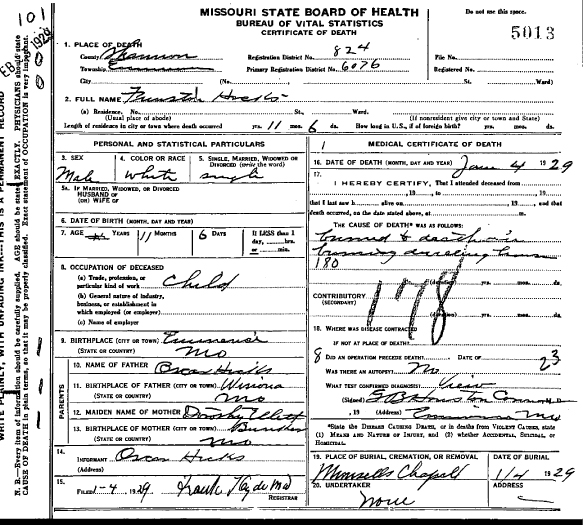 101
MISSOURI STATE BOARD OF HEALTH
BUREAU OF VITAL STATISTICS
CERTIFICATE OF DEATH
Do not use this space.
5013
1. PLACE OF DEATH
County Shannon Registration District No. 824 File No.
Township Primary Registration District No. 6076 Registered No.
City (No. St. Ward)
2. FULL NAME Hicks
(a) Residence. No. St., Ward.
(Usual place of abode) (If nonresident give city or town and State)
Length of residence in city or town where death occurred yrs. 11 mos. 6 ds. How long in U.S., if of foreign birth? yrs. mos. ds.
PERSONAL AND STATISTICAL PARTICULARS
3. SEX 4. COLOR OR RACE 5. SINGLE, MARRIED, WIDOWED OR DIVORCED (write the word)
Male White single
5a. IF MARRIED, WIDOWED, OR DIVORCED
HUSBAND OF
(OR) WIFE OF
6. DATE OF BIRTH (MONTH, DAY AND YEAR)
7. AGE YEARS 11 MONTHS 6 DAYS If LESS than 1 day, hrs. or min.
8. OCCUPATION OF DECEASED
(a) Trade, profession, or particular kind of work Child
(b) General nature of industry, business, or establishment in which employed (or employer)
(c) Name of employer
9. BIRTHPLACE (CITY OR TOWN) Eminence
(STATE OR COUNTRY) Mo
PARENTS
10. NAME OF FATHER Oscar Hicks
11. BIRTHPLACE OF FATHER (CITY OR TOWN) Winona
(STATE OR COUNTRY) Mo
12. MAIDEN NAME OF MOTHER Dorothy Elliott
13. BIRTHPLACE OF MOTHER (CITY OR TOWN) Bunker
(STATE OR COUNTRY) Mo
14. INFORMANT Oscar Hicks
(Address)
15. FILED 1-4, 1929 Frank Hyde MD
REGISTRAR
MEDICAL CERTIFICATE OF DEATH
16. DATE OF DEATH (MONTH, DAY AND YEAR) Jan 4 1929
17.
I HEREBY CERTIFY, That I attended deceased from
, 19, to, 19
that I last saw h alive on, 19, and that
death occurred, on the date stated above, at m.
THE CAUSE OF DEATH* WAS AS FOLLOWS:
burned to death in
burning dwelling house
180
178
(duration) yrs. mos. ds.
CONTRIBUTORY
(SECONDARY)
(duration) yrs. mos. ds.
18. WHERE WAS DISEASE CONTRACTED
IF NOT AT PLACE OF DEATH?
8 DID AN OPERATION PRECEDE DEATH? DATE OF 23
WAS THERE AN AUTOPSY? No
WHAT TEST CONFIRMED DIAGNOSIS? View
(Signed)
, 19 (Address) Eminence Mo
*State the DISEASE CAUSING DEATH, or in deaths from VIOLENT CAUSES, state
(1) MEANS AND NATURE OF INJURY, and (2) whether ACCIDENTAL, SUICIDAL, or
HOMICIDAL.
19. PLACE OF BURIAL, CREMATION, OR REMOVAL DATE OF BURIAL
Chapel 1/4 1929
20. UNDERTAKER ADDRESS
None